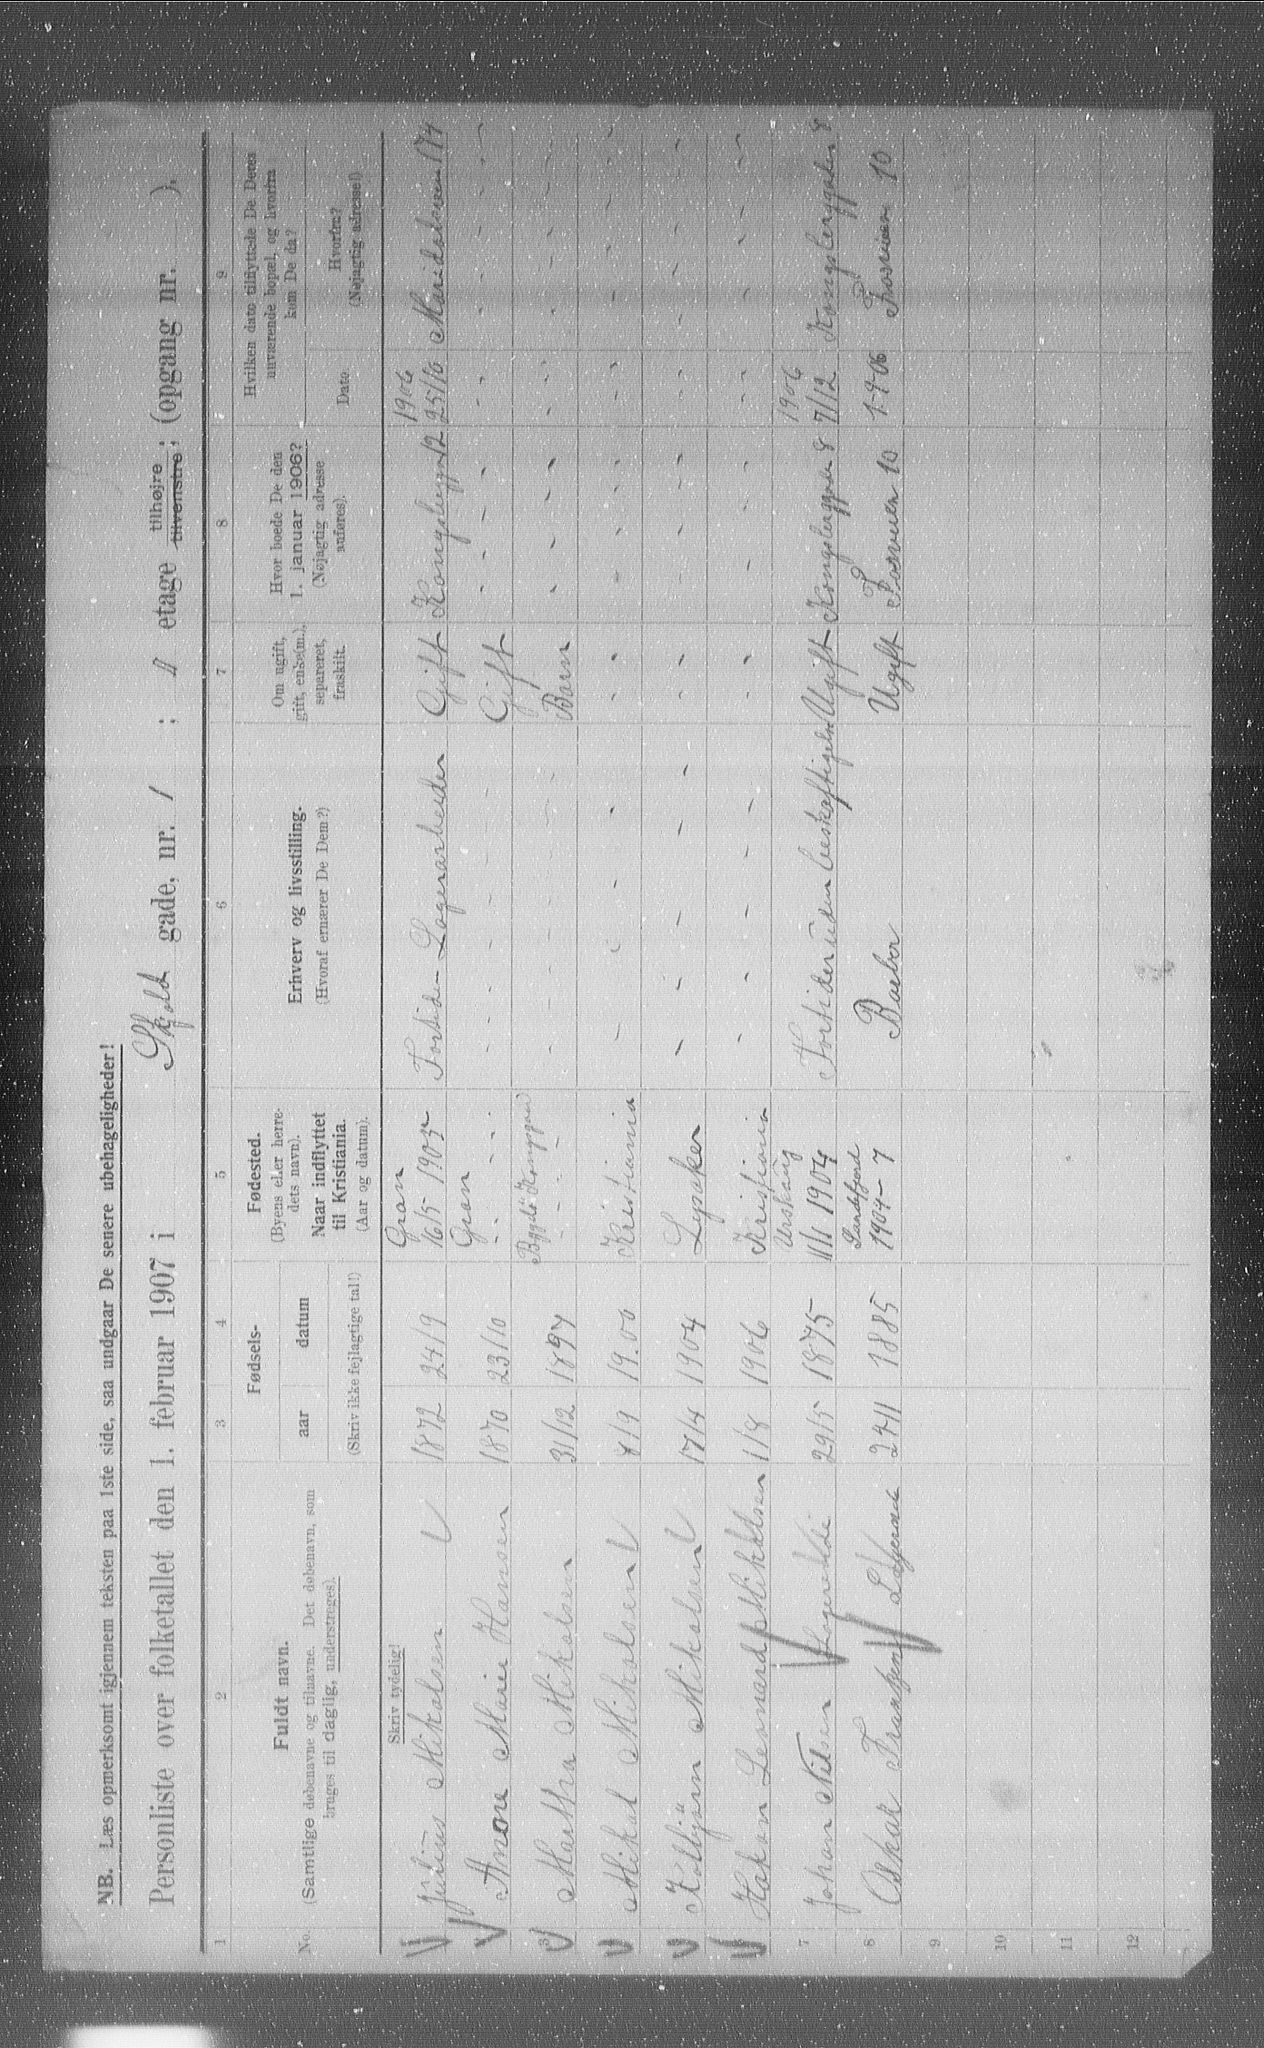 NB. Læs opmerksomt igjennem teksten paa 1ste side, saa undgaar De senere ubehageligheder!
Personliste over folketallet den 1. februar 1907 i Skjold gade, nr. 1 ; etage tilhøjre tilvenstre; (opgang nr. ).
1 2 3 4 5 6 7 8 9
No.
Fuldt navn.
(Samtlige døbenavne og tilnavne. Det døbenavn, som
bruges til daglig, understreges).
Fødsels-
aar datum
(Skriv ikke fejlagtige tal!)
Fødested.
(Byens eler herre-
dets navn).
Naar indflyttet
til Kristiania.
(Aar og datum).
Erhverv og livsstilling.
(Hvoraf ernærer De Dem?)
Om ugift,
gift, enke(m.),
separeret,
fraskilt.
Hvor boede De den
1. januar 1906?
(Nøjagtig adresse
anføres).
Hvilken dato tilflyttede De Deres
nuværende bopæl, og hvorfra
kom De da?
Dato.
Hvorfra?
(Nøjagtig adresse!)
Skriv tydelig!
Julius Mikalsen 1872 24/9 Gran 16/5 1905 Fortid- Lagerarbeider Gift Kongsbergg 12 1906 25/10 Maridalsveien 174
Anne Marie Hansen 1870 23/10 Gran - - - - Gift - - - -
3 Martha Mikalsen 31/12 1897 Bygdö Kongsgaard - - - Barn - - - -
Mikal Mikalsen 8/9 19.00 Kristiania - - - -
Kolbjörn Mikalsen 17/4 1904 Lysaker - - - -
Hakon Leonard Mikalsen 1/8 1906 Kristiania - - - -
7 Johan Nilsen 29/5 1875 Urskaug 11/1 1904 For tiden uden beskæftigelse Ugift Kongsberggade 8 1906 7/12 Kongsberggaden 8
8 Oskar Frantzen 24/11 1885 Sandefjord 1904- 7 Barber Ugift 10 1-9-06 10
9
10
11
12